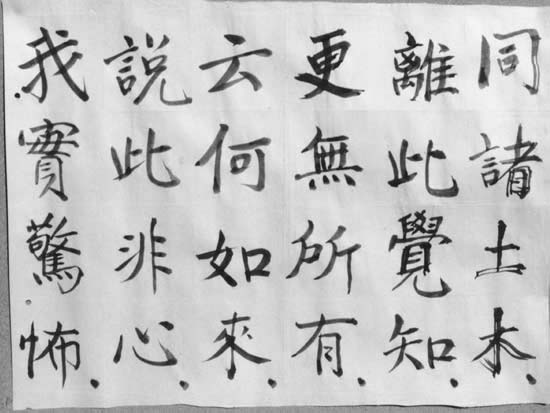 同諸土木
離此覺知
更無所有
云何如來
說此非心
我實驚怖